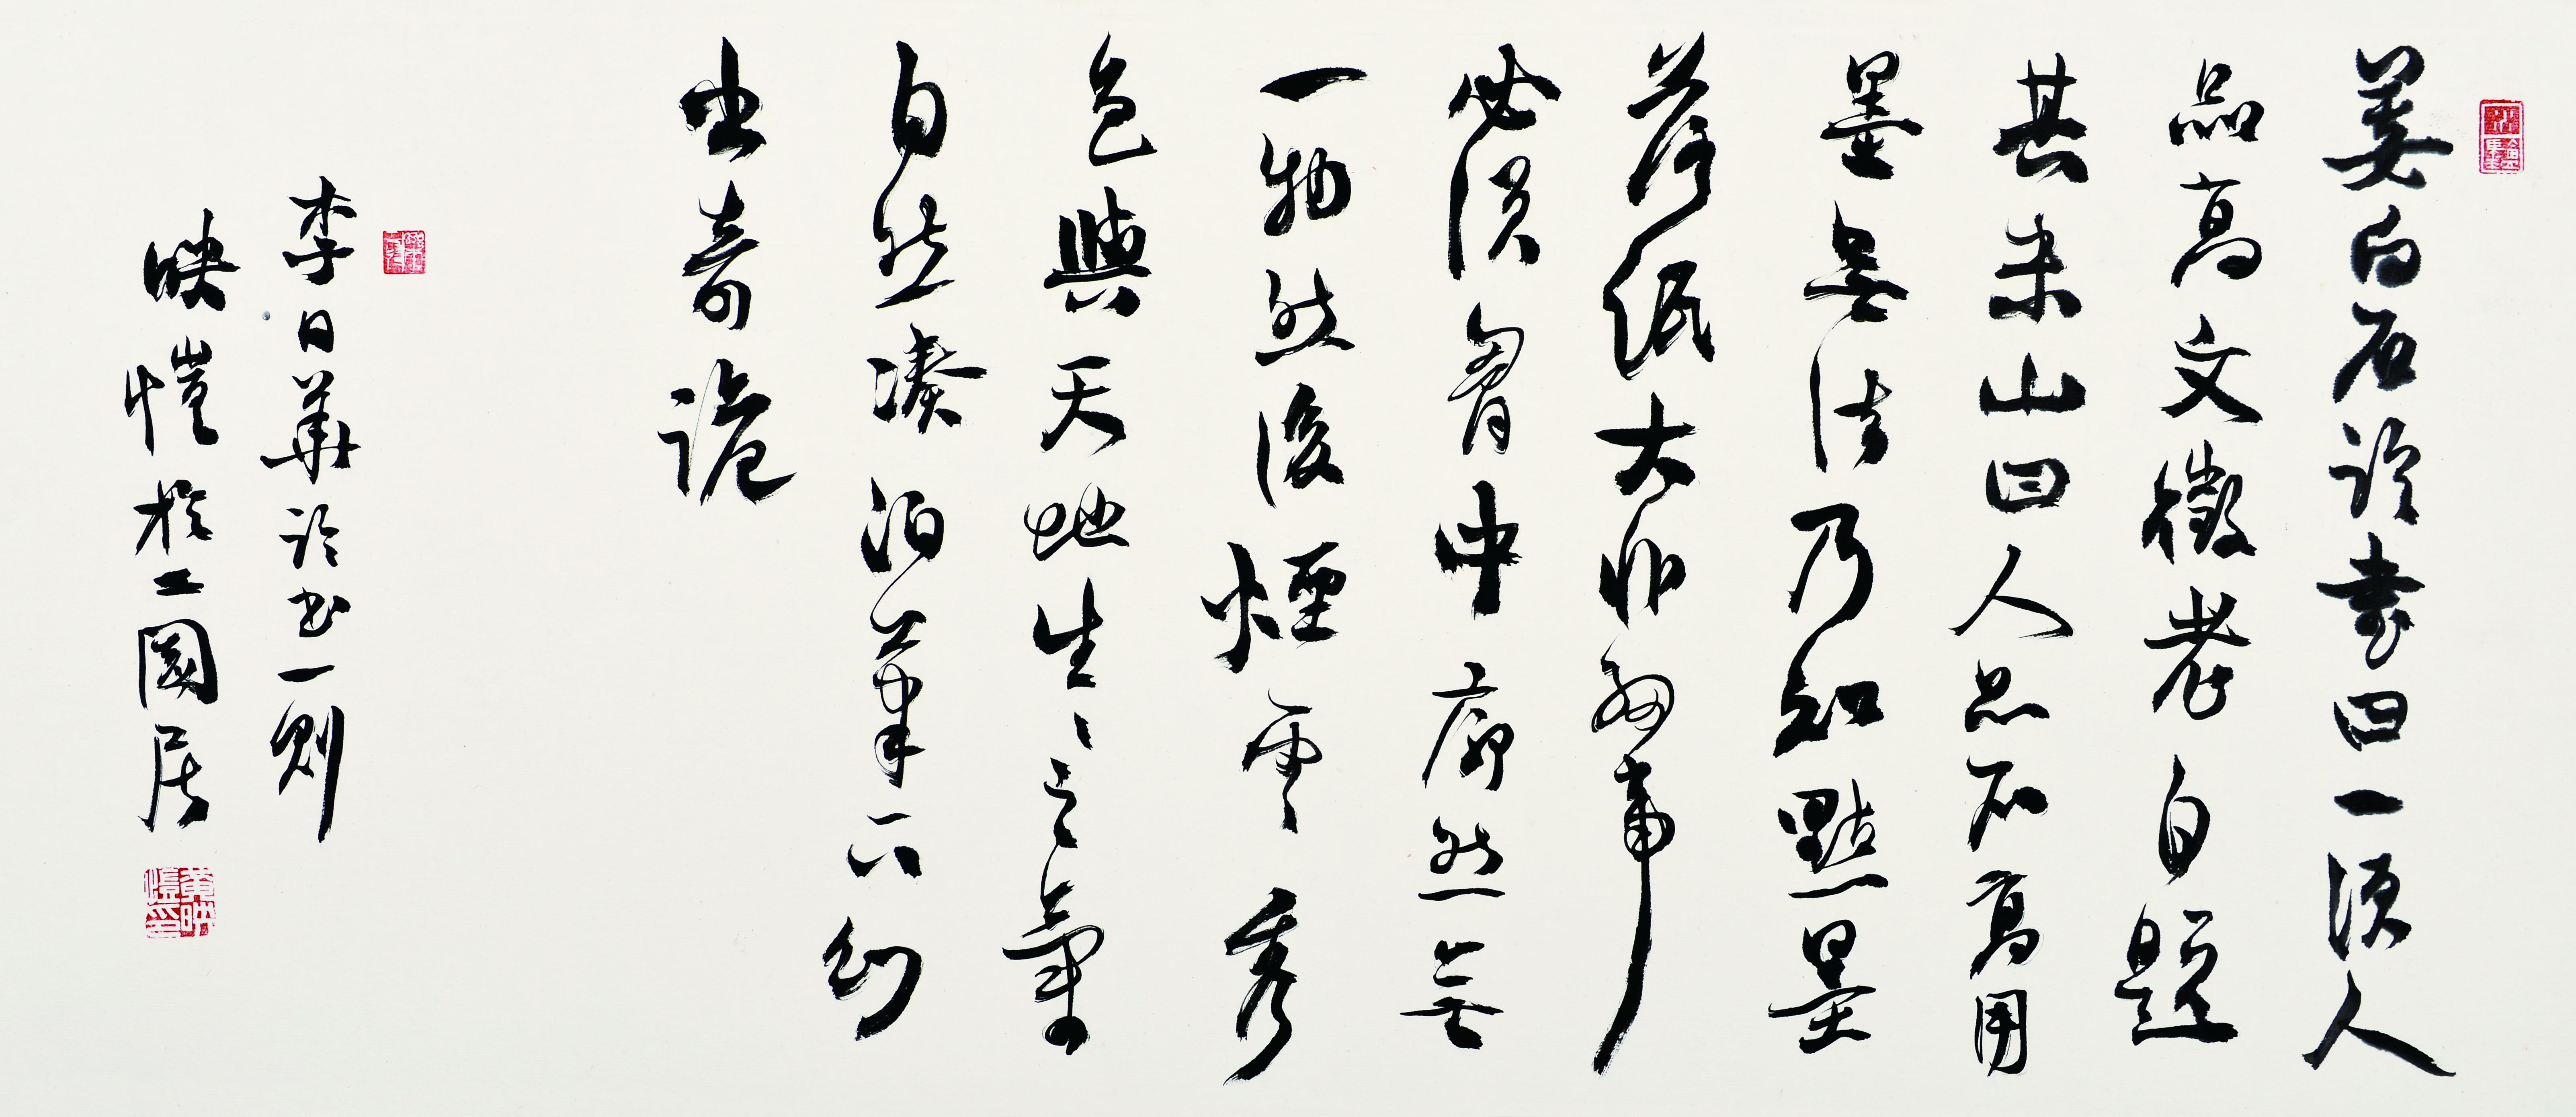 姜白石論書曰一須人
品高文徵老自題
其米山曰人品不高用
墨無法乃知點墨
落紙大非細事
必須胷中廓然無
一物然後煙雲秀
色與天地生〻之氣
自然湊泊筆下幻
出奇詭
李日華論書一則
映愷於二園居
黃映愷印